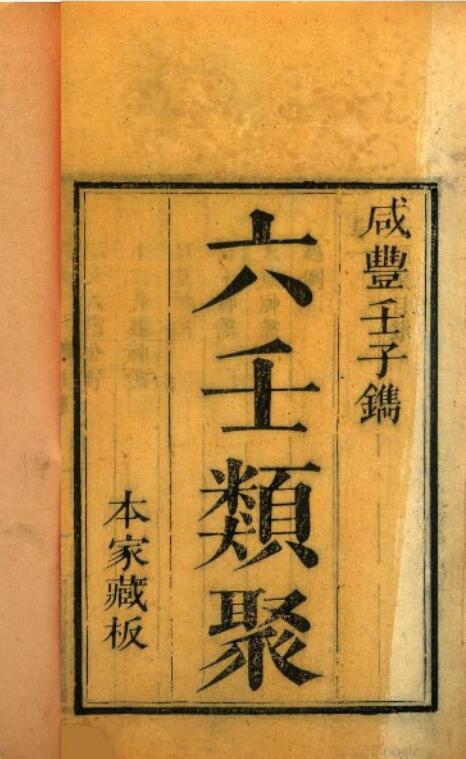 咸豐壬子鐫
六壬類聚
本家藏板
Google